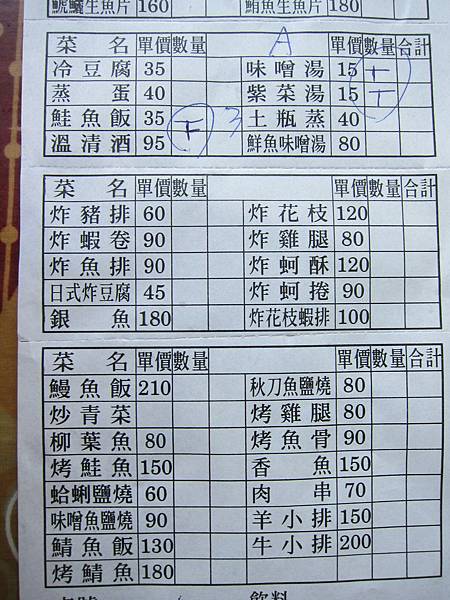 魷鱺生魚片 160 鮪魚生魚片 180
A
菜名 單價 數量 單價 數量 合計
冷豆腐 35 味噌湯 15
蒸蛋 40 紫菜湯 15
鮭魚飯 35 土瓶蒸 40
溫清酒 95 下 3 鮮魚味噌湯 80
菜名 單價 數量 單價 數量 合計
炸豬排 60 炸花枝 120
炸蝦卷 90 炸雞腿 80
炸魚排 90 炸蚵酥 120
日式炸豆腐 45 炸蚵捲 90
銀魚 180 炸花枝蝦排 100
菜名 單價 數量 單價 數量 合計
鰻魚飯 210 秋刀魚鹽燒 80
炒青菜 烤雞腿 80
柳葉魚 80 烤魚骨 90
烤鮭魚 150 香魚 150
蛤蜊鹽燒 60 肉串 70
味噌魚鹽燒 90 羊小排 150
鯖魚飯 130 牛小排 200
烤鯖魚 180
飲料